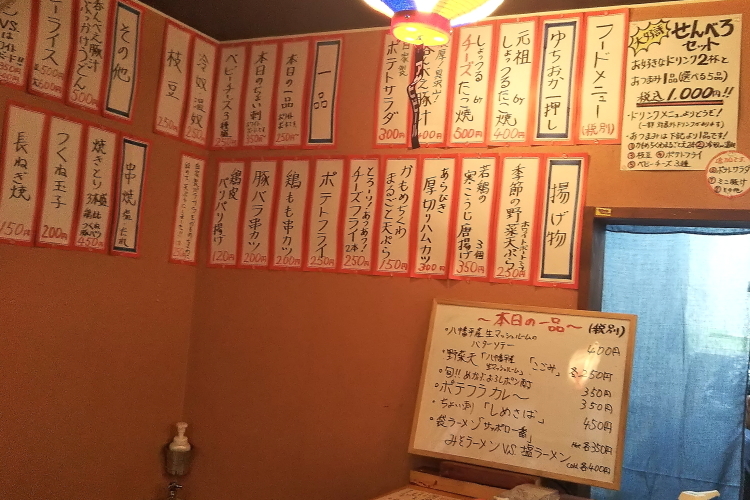 せんべろ
セット
お好きなドリンク2杯と
おつまみ1品(選べる5品)
税込1,000円!!
・ドリンクメニューよりどうぞ!
・おつまみは下記より1品です!
③枝豆 ④ポテトフライ
⑤ベビーチーズ3種
ポテトサラダ
フードメニュー
(税別)
ゆちおか一押し
元祖
しょっつるたこ焼
6ヶ
400円
しょっつる
チーズたこ焼
6ヶ
500円
呑んべえ豚汁
400円
自家製
ポテトサラダ
300円
一品
本日の一品
本日のちょい刺
ベビーチーズ3種盛
250円
冷奴 湯奴
250円
枝豆
250円
その他
呑んべえ豚汁
ぶっかけうどん
500円
揚げ物
季節の野菜天ぷら
250円
若鶏の
塩こうじ唐揚げ
3個
350円
あらびき
厚切りハムカツ
300円
かもめちくわ
まるごと天ぷら
150円
とろーり!あつあつ!
チーズフライ
2本
250円
ポテトフライ
250円
鶏もも串カツ
200円
豚バラ串カツ
200円
鶏皮
パリパリ揚げ
120円
串焼
塩 たれ
焼きとり
450円
つくね玉子
200円
長ねぎ焼
150円
〜本日の一品〜(税別)
・八幡平産生マッシュルームの
バターソテー 400円
・野菜天「八幡平産生マッシュルーム」「こごみ」各250円
・旬!!めかぶおろしポン酢 350円
・ポテフラカレ〜 350円
・ちょい刺「しめさば」 450円
・袋ラーメン「サッポロ一番」
みそラーメンVS.塩ラーメン
Hot 各350円
Cold 各400円